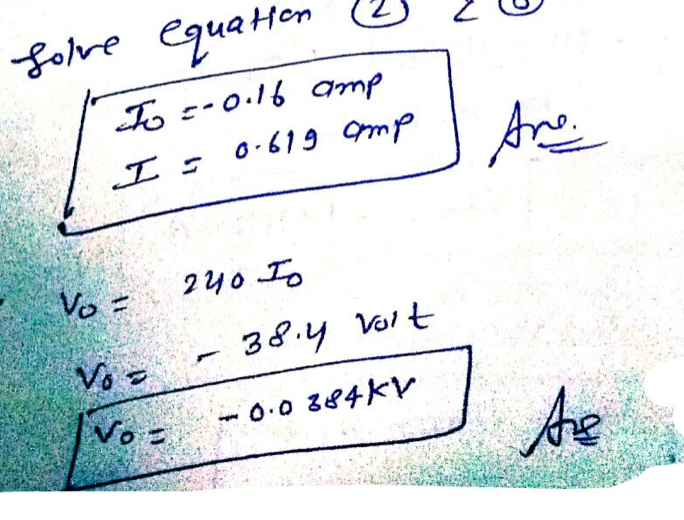 Solve equation ② & ③
Io = -0.16 amp
I = 0.619 amp
Ans.
Vo = 240 Io
Vo = - 38.4 Volt
Vo = - 0.0384KV
Ans